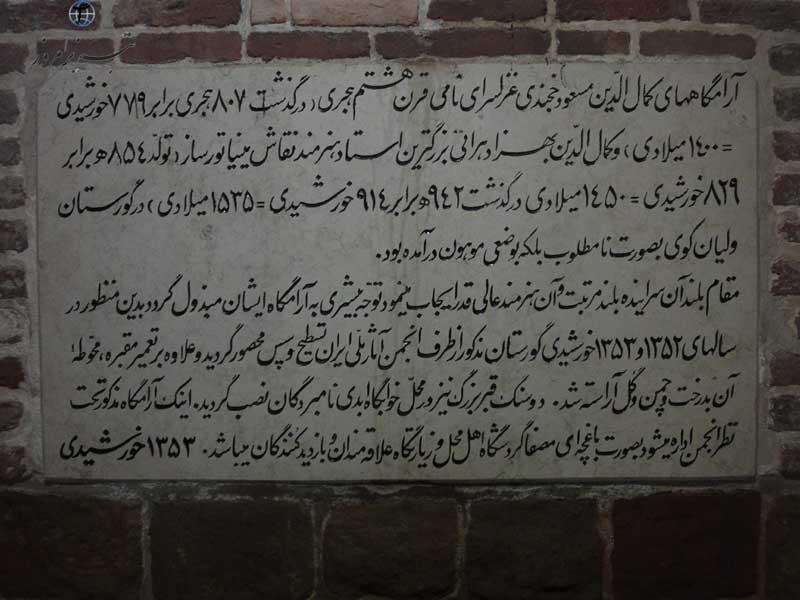 تبریز امروز
آرامگاههای کمال‌الدّین مسعود خجندی غزلسرای نامی قرن هشتم هجری (درگذشت ۸۰۷ هجری برابر ۷۷۹ خورشیدی
= ۱۴۰۰ میلادی) و کمال‌الدّین بهزاد هراتی بزرگترین استاد هنرمند نقاش مینیاتورساز (تولّد ۸۵۴ ه‍ برابر
۸۲۹ خورشیدی = ۱۴۵۰ میلادی درگذشت ۹۴۲ ه‍ برابر ۹۱۴ خورشیدی = ۱۵۳۵ میلادی) در گورستان
ولیان کوی بصورت نامطلوب بلکه بوضعی موهون درآمده بود.
مقام بلند آن سراینده بلند مرتبت و آن هنرمند عالی قدر ایجاب مینمود توجّه بیشتری به آرامگاه ایشان مبذول گردد بدین منظور در
سالهای ۱۳۵۲ و ۱۳۵۳ خورشیدی گورستان مذکور از طرف انجمن آثار ملّی ایران تسطیح و سپس محصور گردید و علاوه بر تعمیر مقبره، محوّطهٔ
آن بدرخت و چمن و گل آراسته شد. دو سنگ قبر بزرگ نیز در محلّ خوابگاه ابدی نامبردگان نصب گردید. اینک آرامگاه مذکور تحت
نظر انجمن اداره میشود بصورت باغچه‌ای مصفا گردشگاه اهل محل و زیارتگاه علاقه‌مندان و بازدیدکنندگان میباشد. ۱۳۵۳ خورشیدی